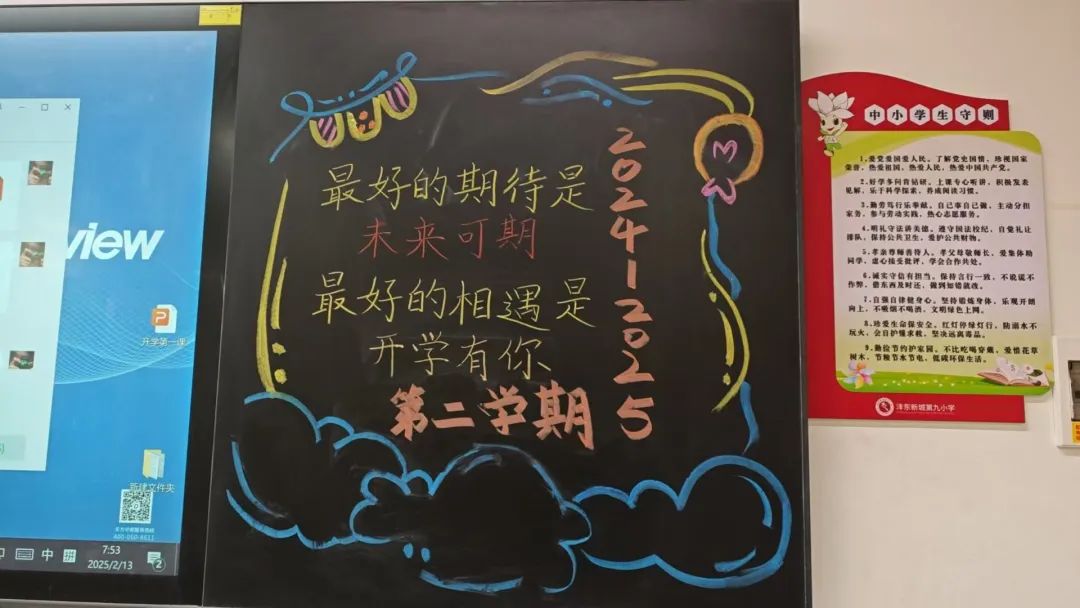 view
开学第一课
新建文件夹
400-060-6611
中
拼
7:53
2025/2/13
2
最好的期待是
未来可期
最好的相遇是
开学有你
第二学期
2024-12025
中小学生守则
1.爱党爱国爱人民。了解党史国情，珍视国家
荣誉，热爱祖国，热爱人民，热爱中国共产党。
2.好学多问肯钻研。上课专心听讲，积极发表
见解，乐于科学探索，养成阅读习惯。
3.勤劳笃行乐奉献。自己事自己做，主动分担
家务，参与劳动实践，热心志愿服务。
4.明礼守法讲美德。遵守国法校纪，自觉礼让
排队，保持公共卫生，爱护公共财物。
5.孝亲尊师善待人。孝父母敬师长，爱集体助
同学，虚心接受批评，学会合作共处。
6.诚实守信有担当。保持言行一致，不说谎不
作弊，借东西及时还，做到知错就改。
7.自强自律健身心。坚持锻炼身体，乐观开朗
向上，不吸烟不喝酒，文明绿色上网。
8.珍爱生命保安全。红灯停绿灯行，防溺水不
玩火，会自护懂求救，坚决远离毒品。
9.勤俭节约护家园。不比吃喝穿戴，爱惜花草
树木，节粮节水节电，低碳环保生活。
沣东新城第九小学